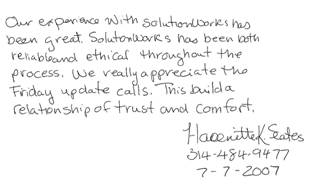 Our experience with SolutionWorks has
been great. SolutionWorks has been both
reliable and ethical throughout the
process. We really appreciate the
Friday update calls. This build a
relationship of trust and comfort.
314-484-9477
7-7-2007